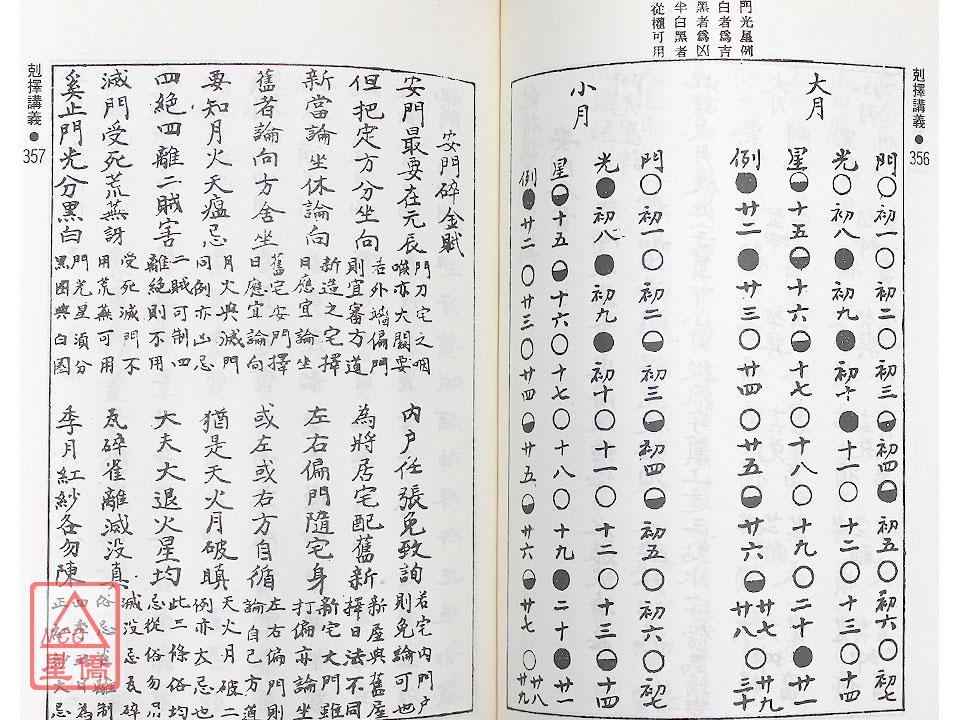 門光星例
白者為吉
黑者為凶
半白黑者
從權可用
剋擇講義 ● 356
大月
門○初一○初二○初三◒初四◒初五○初六○初七
光○初八●初九●初十●十一○十二○十三○十四
星◒十五◒十六◒十七○十八○十九○二十●廿一
例●廿二●廿三○廿四○廿五◒廿六◒廿七○廿八○廿九○三十
小月
門○初一○初二◒初三◒初四◒初五○初六○初七
光●初八●初九●初十○十一○十二○十三◒十四
星◒十五◒十六○十七○十八○十九●二十●廿一
例●廿二○廿三○廿四○廿五◒廿六◒廿七○廿八廿九
剋擇講義 ● 357
安門碎金賦
安門最要在元辰 門乃宅之咽喉亦大關要 內戶任張免致詢 若宅內門戶則免論可也
但把定方分坐向 若外墻偏門則宜審方道 為將居宅配舊新 新屋與舊屋擇日法不同
新當論坐休論向 新造之宅擇日應宜論坐 左右偏門隨宅身 新宅大門雖打偏亦論坐
舊者論向方舍坐 舊宅安門擇日應宜論向 或左或右方自循 左右偏門則論自己方道
要知月火天瘟忌 月火與滅門同例亦凶忌 猶是天火月破瞋 天火月破二例亦大忌也
四絕四離二賊害 二賊可制四離絕則不用 大夫大退火星均 此三條俗均忌從俗勿忌
滅門受死荒蕪訝 受死滅門不用荒蕪可用 瓦碎雀離滅没真
奚止門光分黑白 門光星須分黑圈與白圈 季月紅紗各勿陳
星僑